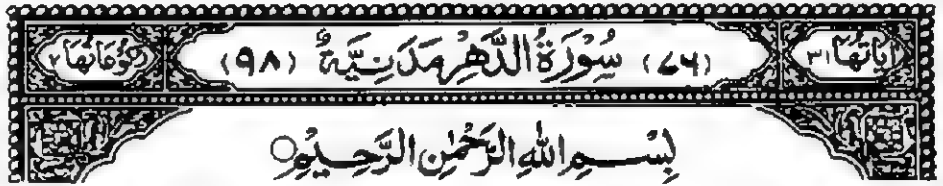 اٰیَاتُهَا ٣١ (٧٦) سُوْرَةُ الدَّهْرِ مَدَنِیَّةٌ (٩٨) رُكُوْعَاتُهَا ٢
بِسْمِ اللهِ الرَّحْمٰنِ الرَّحِیْمِ